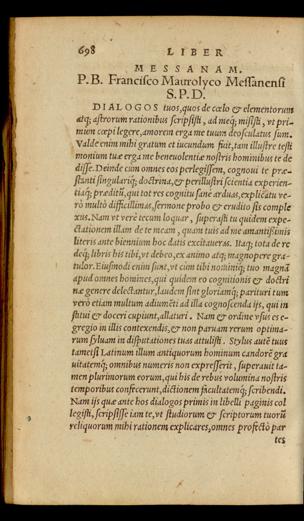 698 LIBER
MESSANAM.
P. B. Francisco Maurolyco Messanensi
S. P. D.
DIALOGOS tuos, quos de cœlo & elementorum
atq; astrorum rationibus scripsisti, ad meq; misisti, vt pri-
mum cœpi legere, amorem erga me tuum deosculatus sum.
Valde enim mihi gratum et iucundum fuit, tam illustre testi
monium tuæ erga me beneuolentiæ nostris hominibus te de
disse. Deinde cùm omnes eos perlegissem, cognoui te præ-
stanti singulariq; doctrina, & perillustri scientia experien-
tiaq; præditũ, qui tot res cognitu sane arduas, explicatu ve-
rò multò difficillimas, sermone probo & erudito sis comple
xus. Nam vt verè tecum loquar, superasti tu quidem expe-
ctationem illam de te meam, quam tuis ad me amantissimis
literis ante biennium hoc datis excitaueras. Itaq; tota de re
deq; libris his tibi, vt debeo, ex animo atq; magnopere gra-
tulor. Eiusmodi enim sunt, vt cùm tibi nominiq; tuo magnã
apud omnes homines, qui quidem eo cognitionis & doctri
næ genere delectantur, laudem sint gloriamq; parituri tum
verò etiam multum adiumẽti ad illa cognoscenda ijs, qui in
stitui & doceri cupiunt, allaturi. Nam & ordine vsus es e-
gregio in illis contexendis, & non paruam rerum optima-
rum syluam in disputationes tuas attulisti. Stylus autẽ tuus
tametsi Latinum illum antiquorum hominum candorẽ gra
uitatemq; omnibus numeris non expresserit, superauit ta-
men plurimorum eorum, qui his de rebus volumina nostris
temporibus confecerunt, dictionem facultatemq; scribendi.
Nam ijs quæ ante hos dialogos primis in libelli paginis col
legisti, scripsisse iam te, vt studiorum & scriptorum tuorũ
reliquorum mihi rationem explicares, omnes profectò par
tes